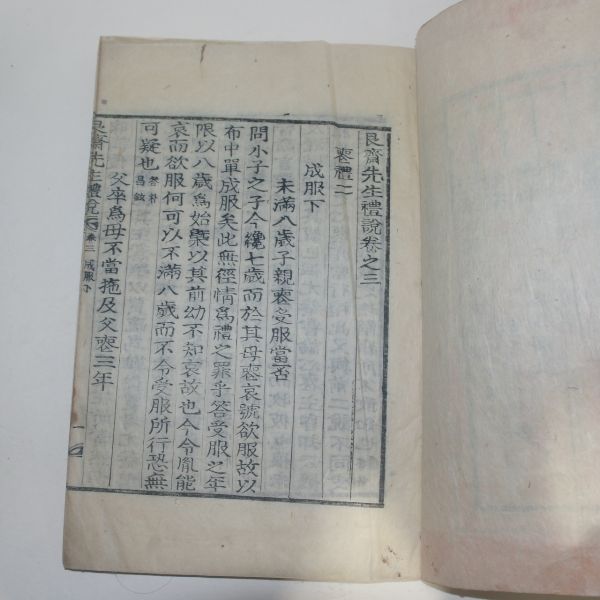 艮齋先生禮說卷之三
喪禮二
成服下
未滿八歲子親喪受服當否
問小子之子今纔七歲而於其母喪哀號欲服故以
布中單成服矣此無徑情爲禮之罪乎答受服之年
限以八歲爲始槩以其前幼不知哀故也今令胤能
哀而欲服何可以不滿八歲而不令受服所行恐無
可疑也答朴昌鉉
父卒爲母不當拖及父喪三年
艮齋先生禮說 卷三 成服下 一